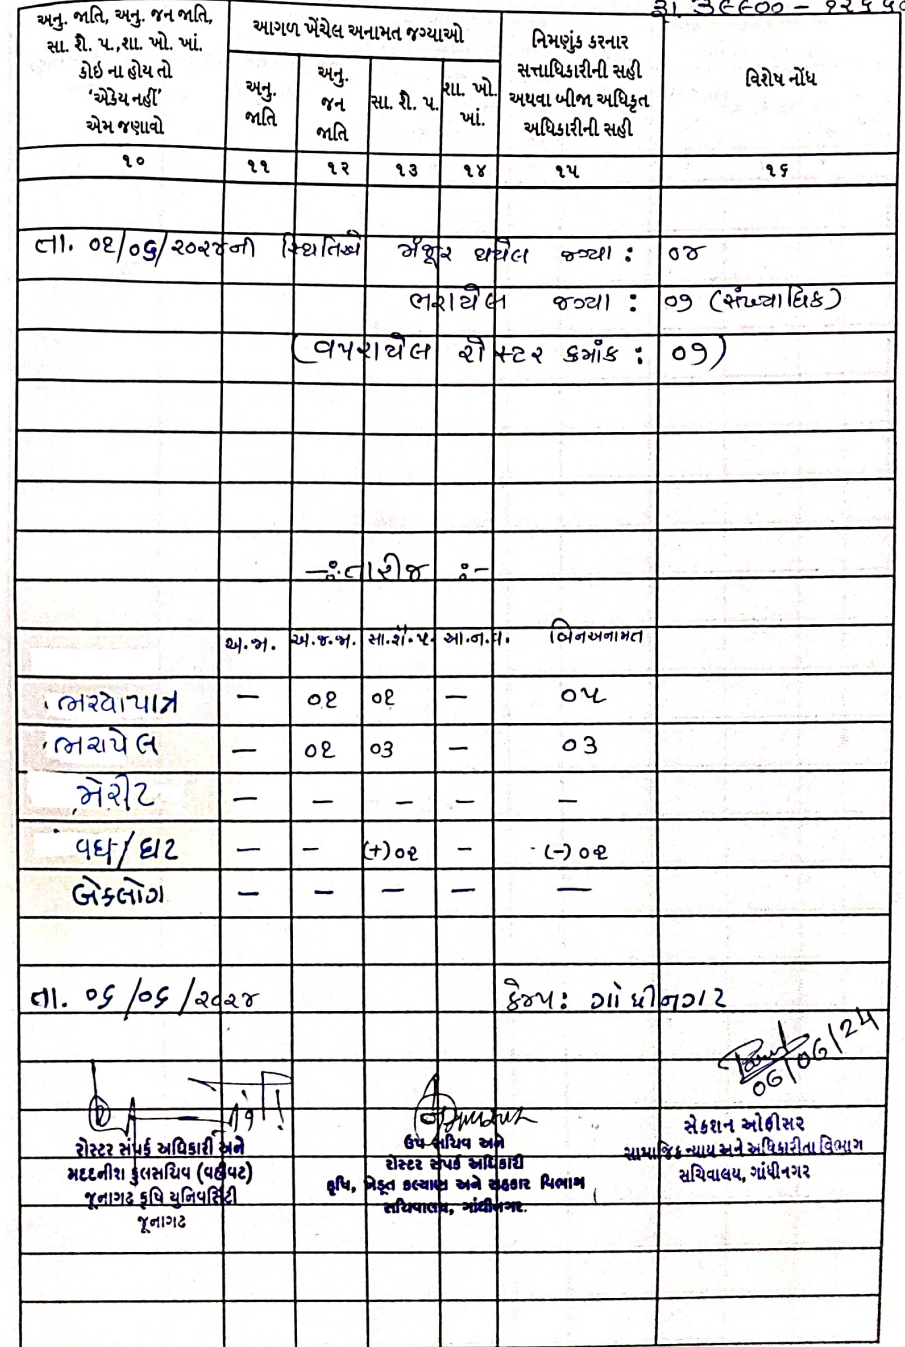 રૂા. ૩૯૯૦૦ –
અનુ. જાતિ, અનુ. જન જાતિ,
સા. શૈ. પ.,શા. ખો. ખાં.
કોઇ ના હોય તો
'એકેય નહીં'
એમ જણાવો
આગળ ખેંચેલ અનામત જગ્યાઓ
અનુ.
જાતિ
અનુ.
જન
જાતિ
સા. શૈ. પ.
શા. ખો.
ખાં.
નિમણુંક કરનાર
સત્તાધિકારીની સહી
અથવા બીજા અધિકૃત
અધિકારીની સહી
વિશેષ નોંધ
૧૦ ૧૧ ૧૨ ૧૩ ૧૪ ૧૫ ૧૬
તા. ૦૧/૦૬/૨૦૨૪ની સ્થિતિએ મંજૂર થયેલ જગ્યા : ૦૪
ભરાયેલ જગ્યા : ૦૭ (સંખ્યાધિક)
(વપરાયેલ રોસ્ટર ક્રમાંક : ૦૭)
–:: તારીજ ::–
અ.જા. અ.જ.જા. સા.શૈ.પ. આ.ન.વ. બિનઅનામત
ભરવાપાત્ર — ૦૧ ૦૧ — ૦૫
ભરાયેલ — ૦૧ ૦૩ — ૦૩
મેરીટ — — — — —
વધ/ઘટ — — (+)૦૨ — (-)૦૨
બેકલોગ — — — — —
તા. ૦૬/૦૬/૨૦૨૪ કેમ્પ: ગાંધીનગર
06/06/24
રોસ્ટર સંપર્ક અધિકારી અને
મદદનીશ કુલસચિવ (વહીવટ)
જૂનાગઢ કૃષિ યુનિવર્સિટી
જૂનાગઢ
ઉપ સચિવ અને
રોસ્ટર સંપર્ક અધિકારી
કૃષિ, ખેડૂત કલ્યાણ અને સહકાર વિભાગ
સચિવાલય, ગાંધીનગર.
સેકશન ઓફીસર
સામાજિક ન્યાય અને અધિકારીતા વિભાગ
સચિવાલય, ગાંધીનગર